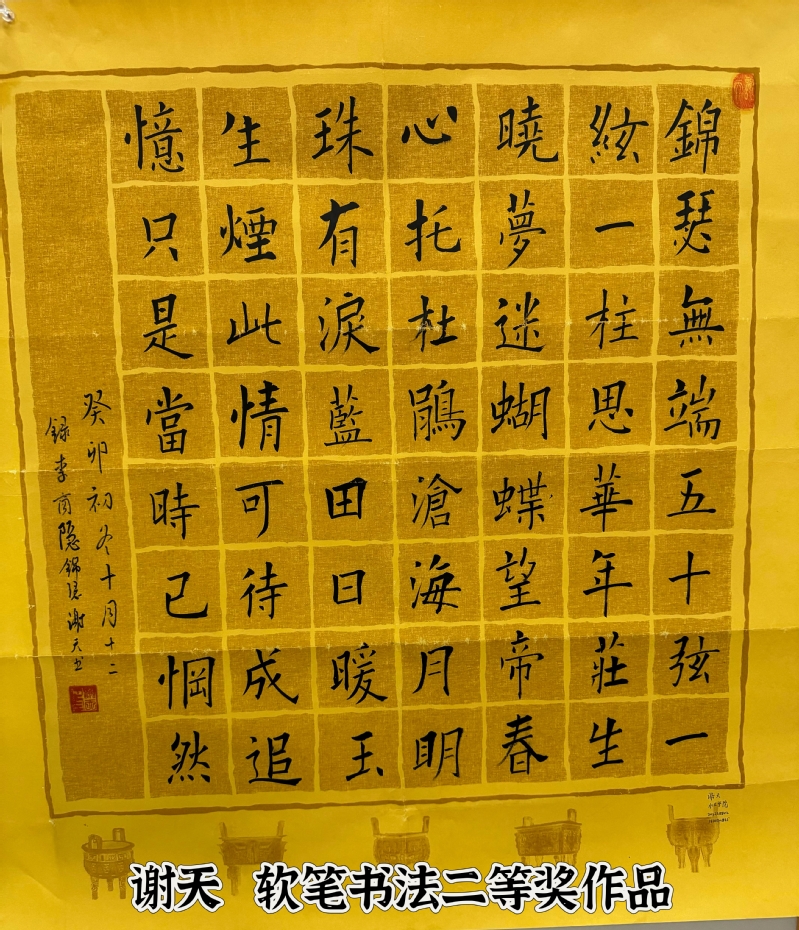 錦瑟無端五十弦一
絃一柱思華年莊生
曉夢迷蝴蝶望帝春
心托杜鵑滄海月明
珠有淚藍田日暖玉
生煙此情可待成追
憶只是當時已惘然
癸卯初冬十月十二
録李商隐錦瑟谢天书
谢天 软笔书法二等奖作品